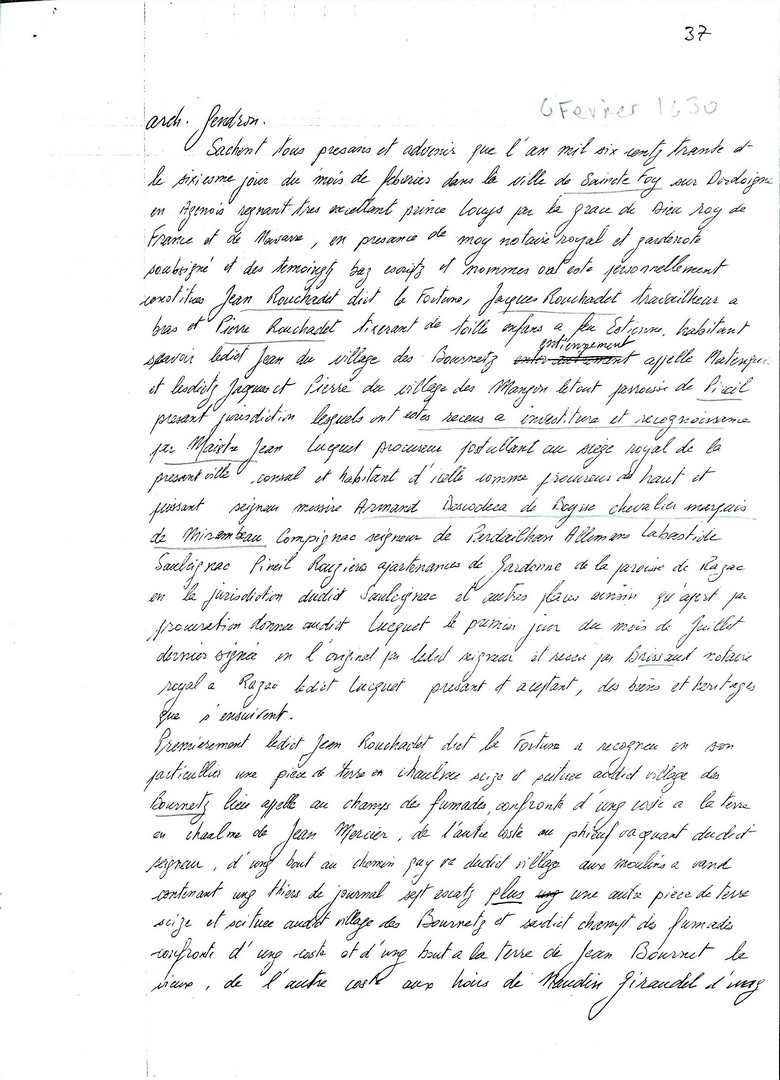 37
6 Fevrier 1630
arch. Gendron.
Sachent tous presans et advenir que l'an mil six centz trante et
le sixiesme jour du mois de febvrier dans la ville de Saincte Foy sur Dordoigne
en Agenois regnant tres excellant prince Louys par la grace de Dieu roy de
France et de Navarre, en presance de moy notaire royal et gardenote
soubsigné et des temoingtz baz escritz et nommes ont esté personnellement
constitues Jean Rouchadet dict la Fortune, Jacques Rouchadet travailheur a
bras et Pierre Rouchadet tixerant de toille enfans a feu Estienne, habitant
antiennement
scavoir ledict Jean du village des Bournetz appelle
et lesdictz Jacques et Pierre du village des Mangon le tout parroisse de Pineil
presant jurisdiction lesquels ont estes receus a investiture et recognoissance
par Maistre Jean Lucquet procureur postullant au siège royal de la
present ville, consul et habitant d'icelle comme procureur du haut et
puissant seigneur messire Armand Descodeca de Boysse chevalier marquis
de Mirembeau Compignac seigneur de Perdailhan Allemans Labastide
Saulcignac Pineil Rougiers apartenances de Gardonne de la paroisse de Razac
en la jurisdiction dudict Saulcignac et autres places ainsin qu'apert par
procuration donnee audict Lucquet le premier jour du mois de Juillet
dernier signée en l'original par ledict seigneur et receu par Brissaud notaire
royal a Razac ledict Lucquet presant et aceptant, des biens et heritages
que s'ensuivent.
Premierement ledict Jean Rouchadet dict la Fortune a recogneu en son
particullier une pièce de terre en chaulme scize et scituee audict village des
Bournetz lieu appellé au champs des fumades, confronte d'ung costé a la terre
en chaulme de Jean Mercier, de l'autre coste au phieuf vaquant dudict
seigneur, d'ung bout au chemin quy va dudict village aux moulins a vand
contenant ung thiers de journal sept escatz plus ung une autre piece de terre
scize et scituee audict village des Bournetz et susdict champt des fumades
confronte d'ung coste et d'ung bout a la terre de Jean Bournet le
vieux, de l'autre coste aux hoirs de Naudin Giraudel d'ung